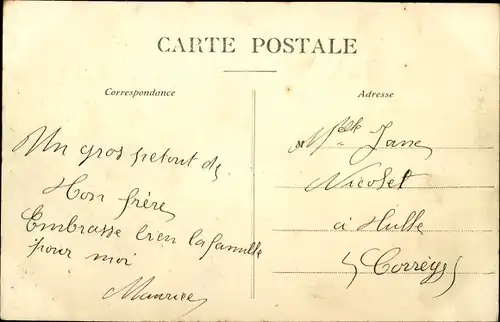 CARTE POSTALE
Correspondance
Un gros
Ton frère
Embrasse bien la famille
pour moi
Maurice
Adresse
Melle Jane
Nicolet
à
(Corrèze)